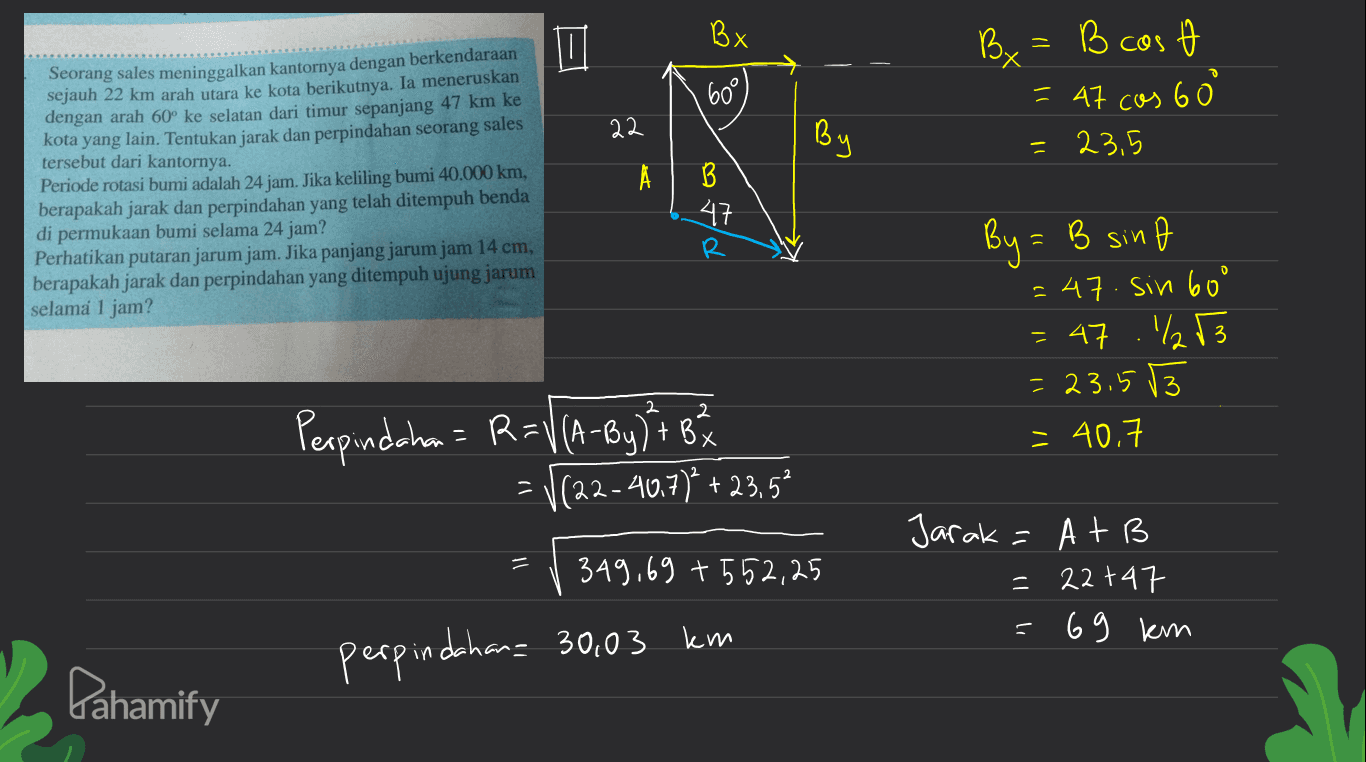 Seorang sales meninggalkan kantornya dengan berkendaraan
sejauh 22 km arah utara ke kota berikutnya. Ia meneruskan
dengan arah 60° ke selatan dari timur sepanjang 47 km ke
kota yang lain. Tentukan jarak dan perpindahan seorang sales
tersebut dari kantornya.
Periode rotasi bumi adalah 24 jam. Jika keliling bumi 40.000 km,
berapakah jarak dan perpindahan yang telah ditempuh benda
di permukaan bumi selama 24 jam?
Perhatikan putaran jarum jam. Jika panjang jarum jam 14 cm,
berapakah jarak dan perpindahan yang ditempuh ujung jarum
selama 1 jam?
1
Bx
60°
22
By
A
B
47
R
Bx = B cos θ
= 47 cos 60°
= 23,5
By = B sin θ
= 47 . sin 60°
= 47 . 1/2 √3
= 23,5 √3
= 40,7
Perpindahan = R = √(A-By)² + Bx²
= √(22-40,7)² + 23,5²
= √349,69 + 552,25
perpindahan = 30,03 km
Jarak = A + B
= 22 + 47
= 69 km
Pahamify